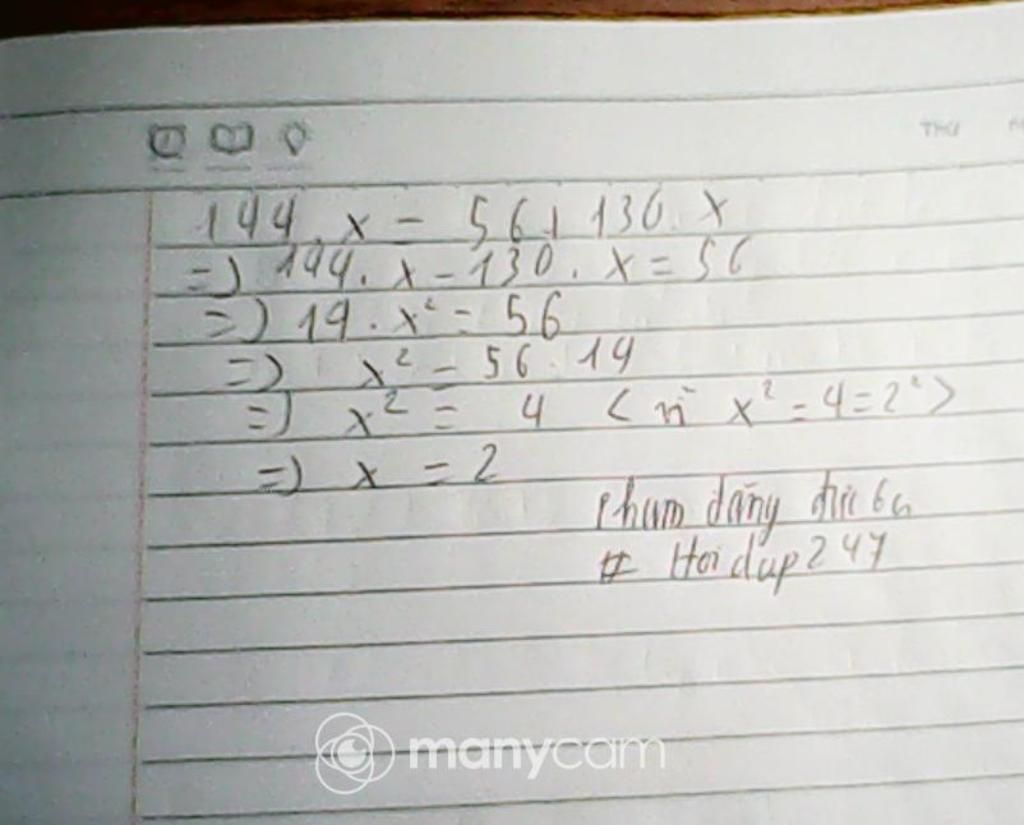 THỨ
144. x = 56 + 130. x
=) 144. x - 130. x = 56
=) 14. x² = 56
=) x² = 56. 14
=) x² = 4 < vì x² = 4 = 2² >
=) x = 2
Pham đăng đức 6a
# Hoi dap 247
manycam